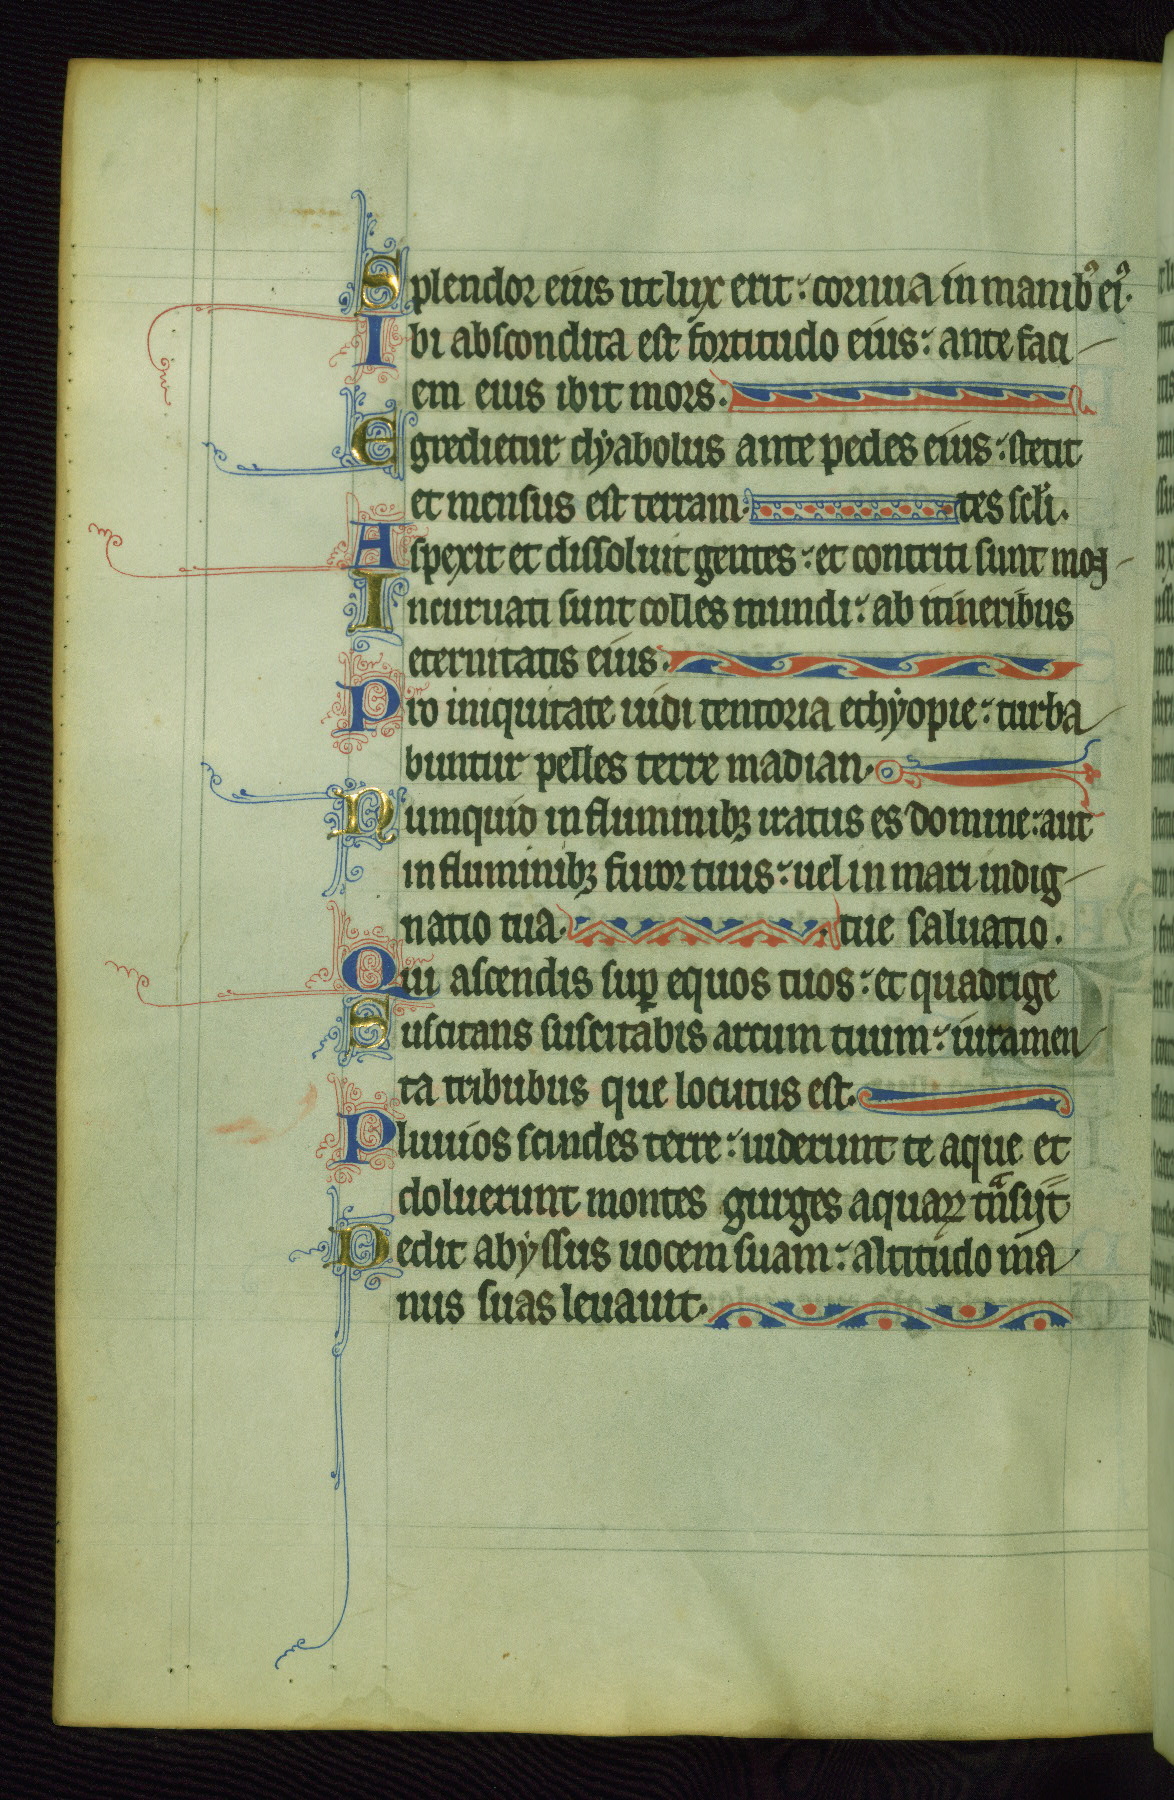 Splendor eius ut lux erit: cornua in manib⁹ ei⁹.
Ibi abscondita est fortitudo eius: ante faci
em eius ibit mors.
Egredietur dyabolus ante pedes eius: stetit
et mensus est terram. tes scl'i.
Aspexit et dissoluit gentes: et contriti sunt moꝫ
Incuruati sunt colles mundi: ab itineribus
eternitatis eius.
Pro iniquitate uidi tentoria ethyopie: turba
buntur pelles terre madian.
Numquid in fluminibꝫ iratus es domine: aut
in fluminibꝫ furor tuus: uel in mari indig
natio tua. tue saluatio.
Qui ascendis suꝑ equos tuos: et quadrige
Suscitans suscitabis arcum tuum: iuramen
ta tribubus que locutus est.
Pluuios scindes terre: uiderunt te aque et
doluerunt montes gurges aquaꝝ tᵃnsijt
Dedit abyssus uocem suam: altitudo ma
nus suas leuauit.